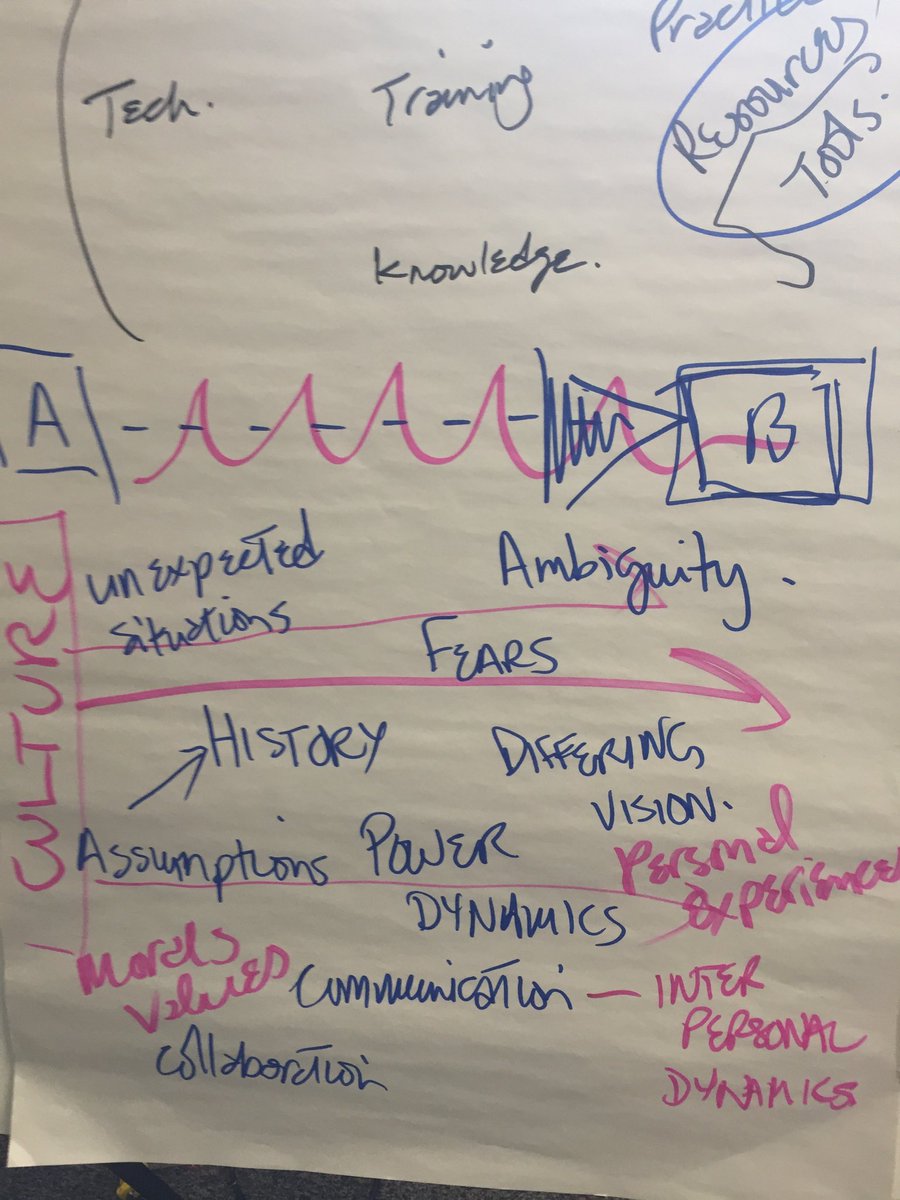 Tech. Training
Resources
Tools.
Knowledge.
A B
CULTURE
unexpected
situations
Ambiguity.
FEARS
HISTORY
DIFFERING
VISION.
Assumptions
POWER
DYNAMICS
Personal
experience
Morals
Values
Communication — INTER
PERSONAL
DYNAMICS
collaboration